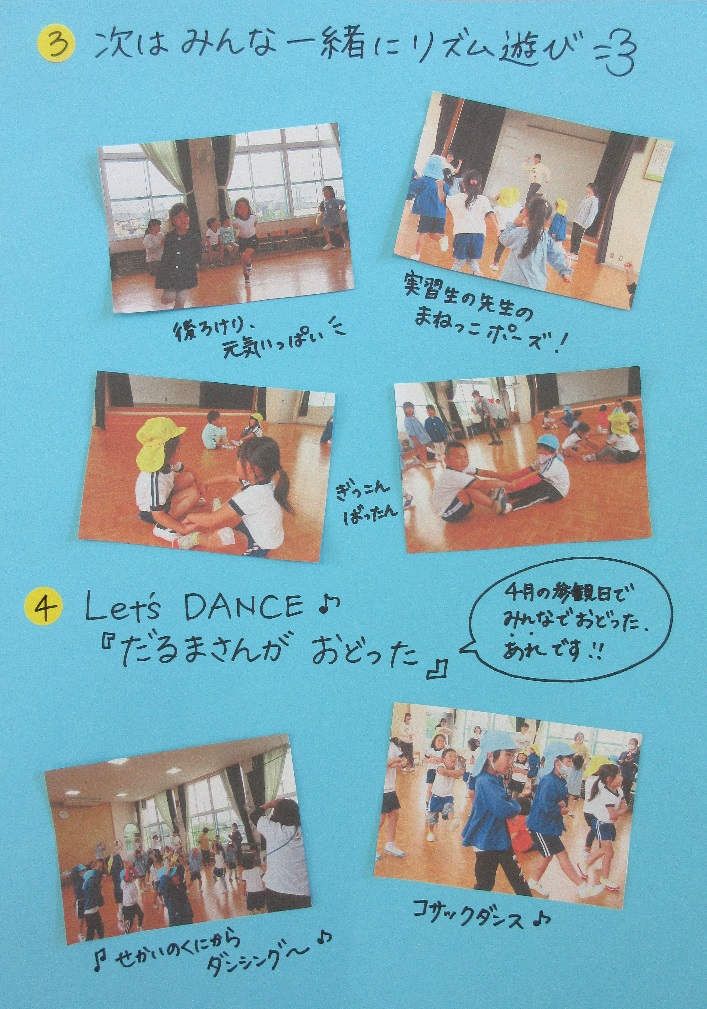 3 次は みんな一緒に リズム遊び =3
後ろけり、
元気いっぱい
実習生の先生の
まねっこポーズ!
ぎっこん
ばったん
4 Let's DANCE♪
『だるまさんが おどった』
4月の参観日で
みんなでおどった、
あれです!!
♪せかいのくにから
ダンシング〜♪
コサックダンス♪